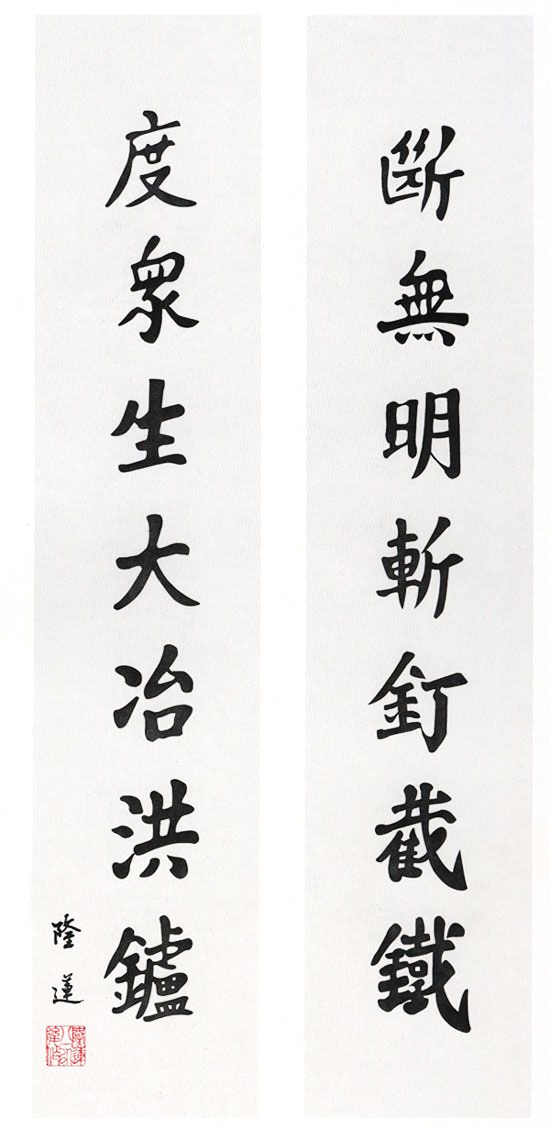 斷無明斬釘截鐵
度眾生大冶洪鑪
隆蓮